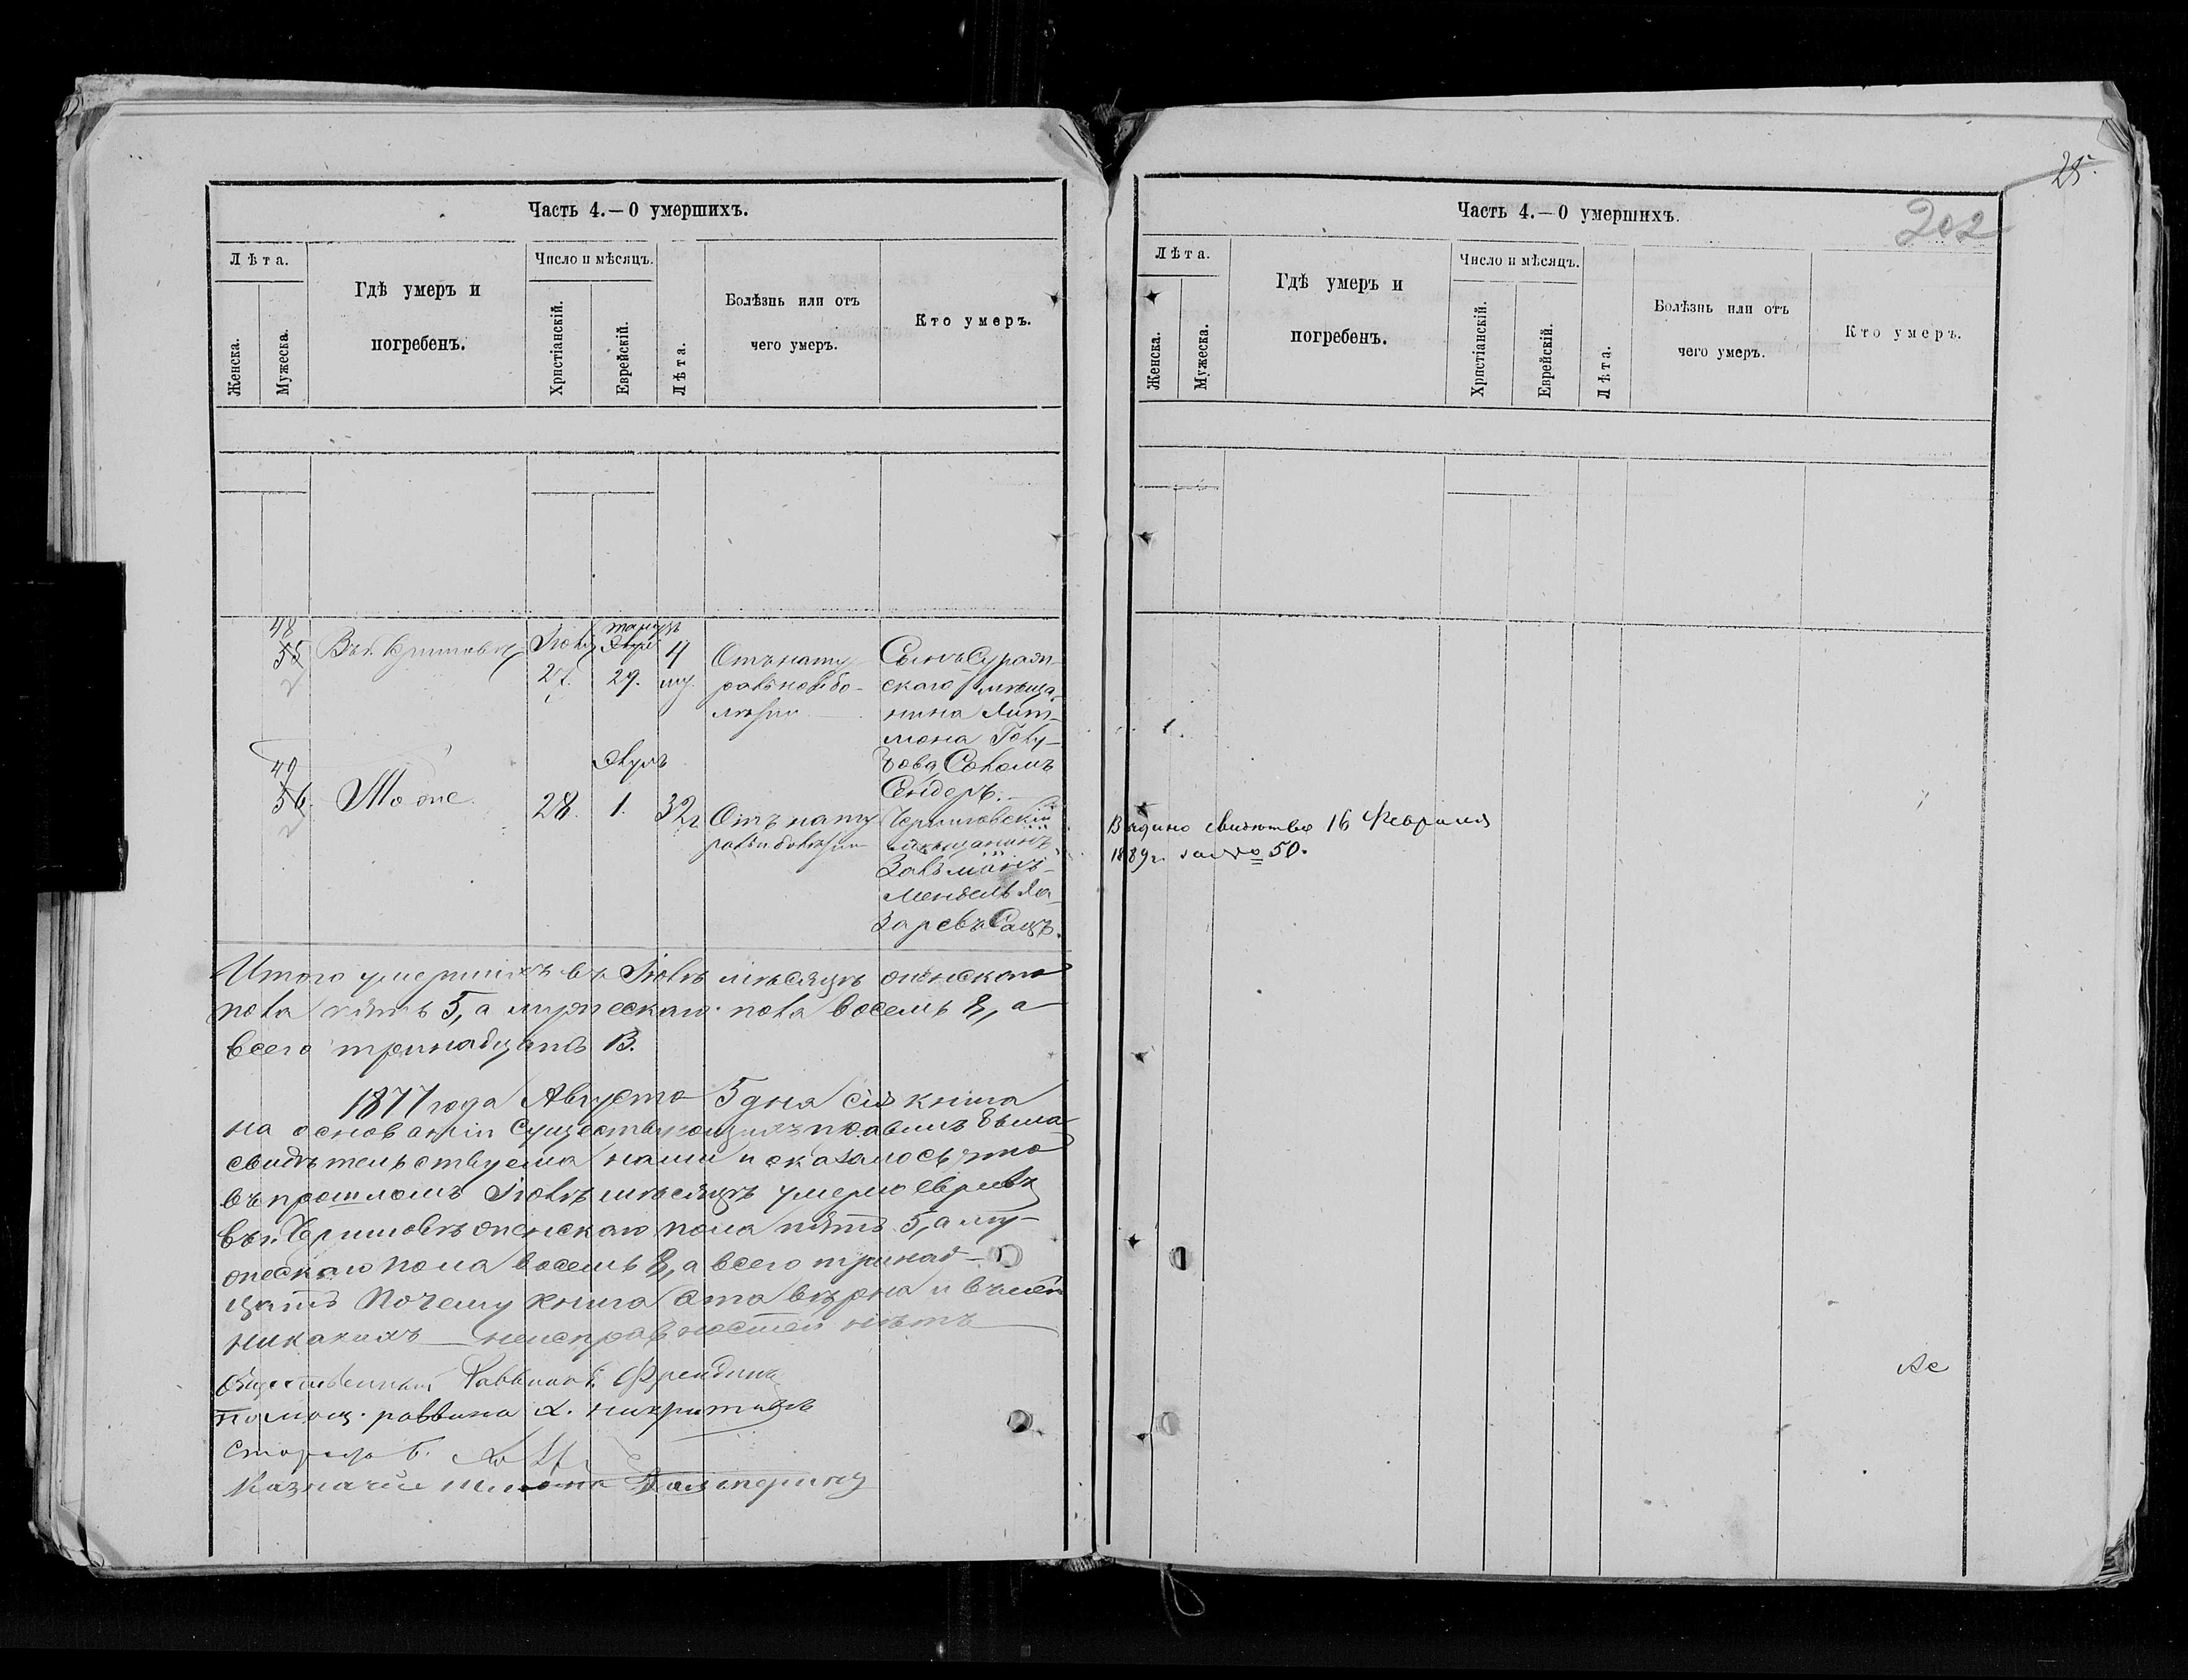 Часть 4.—О умершихъ.
Лѣта.
Женска.
Мужеска.
Гдѣ умеръ и
погребенъ.
Число и мѣсяцъ.
Христіанскій.
Еврейскій.
Лѣта.
Болѣзнь или отъ
чего умеръ.
Кто умеръ.
48
55
Въ г. Черниговѣ
Іюля
27.
тамузъ
29.
4
Отъ нату-
ральной бо-
лѣзни
Сынъ Сураж-
скаго мѣща-
нина
Сендеръ.
49
56.
То же
28.
1.
32
Отъ нату
ральн болѣзни
Черниговскій
мѣщанинъ
Залъманъ-
Мендель Ла-
заревъ Сацъ.
Итого умершихъ въ Іюлѣ мѣсяцѣ женскаго
пола пять 5, а мужескаго пола восемь 8, а
всего тринадцать 13.
1877 года Августа 5 дня сія книга
на основаніи существующихъ правилъ была
свидѣтельствуема нами и оказалось что
въ прошломъ Іюлѣ мѣсяцѣ умерло евреевъ
въ г. Черниговѣ женскаго пола пять 5, а му-
жескаго пола восемь 8, а всего тринад-
цать Почему книга эта вѣрна и въ ней
никакихъ неисправностей нѣтъ
Общественный Раввинъ
Помощ. раввина
Староста
Казначей
25.
202
Часть 4.—О умершихъ.
Лѣта.
Женска.
Мужеска.
Гдѣ умеръ и
погребенъ.
Число и мѣсяцъ.
Христіанскій.
Еврейскій.
Лѣта.
Болѣзнь или отъ
чего умеръ.
Кто умеръ.
Выдано свидѣтво 16 Февраля
1889 г. за № 50.